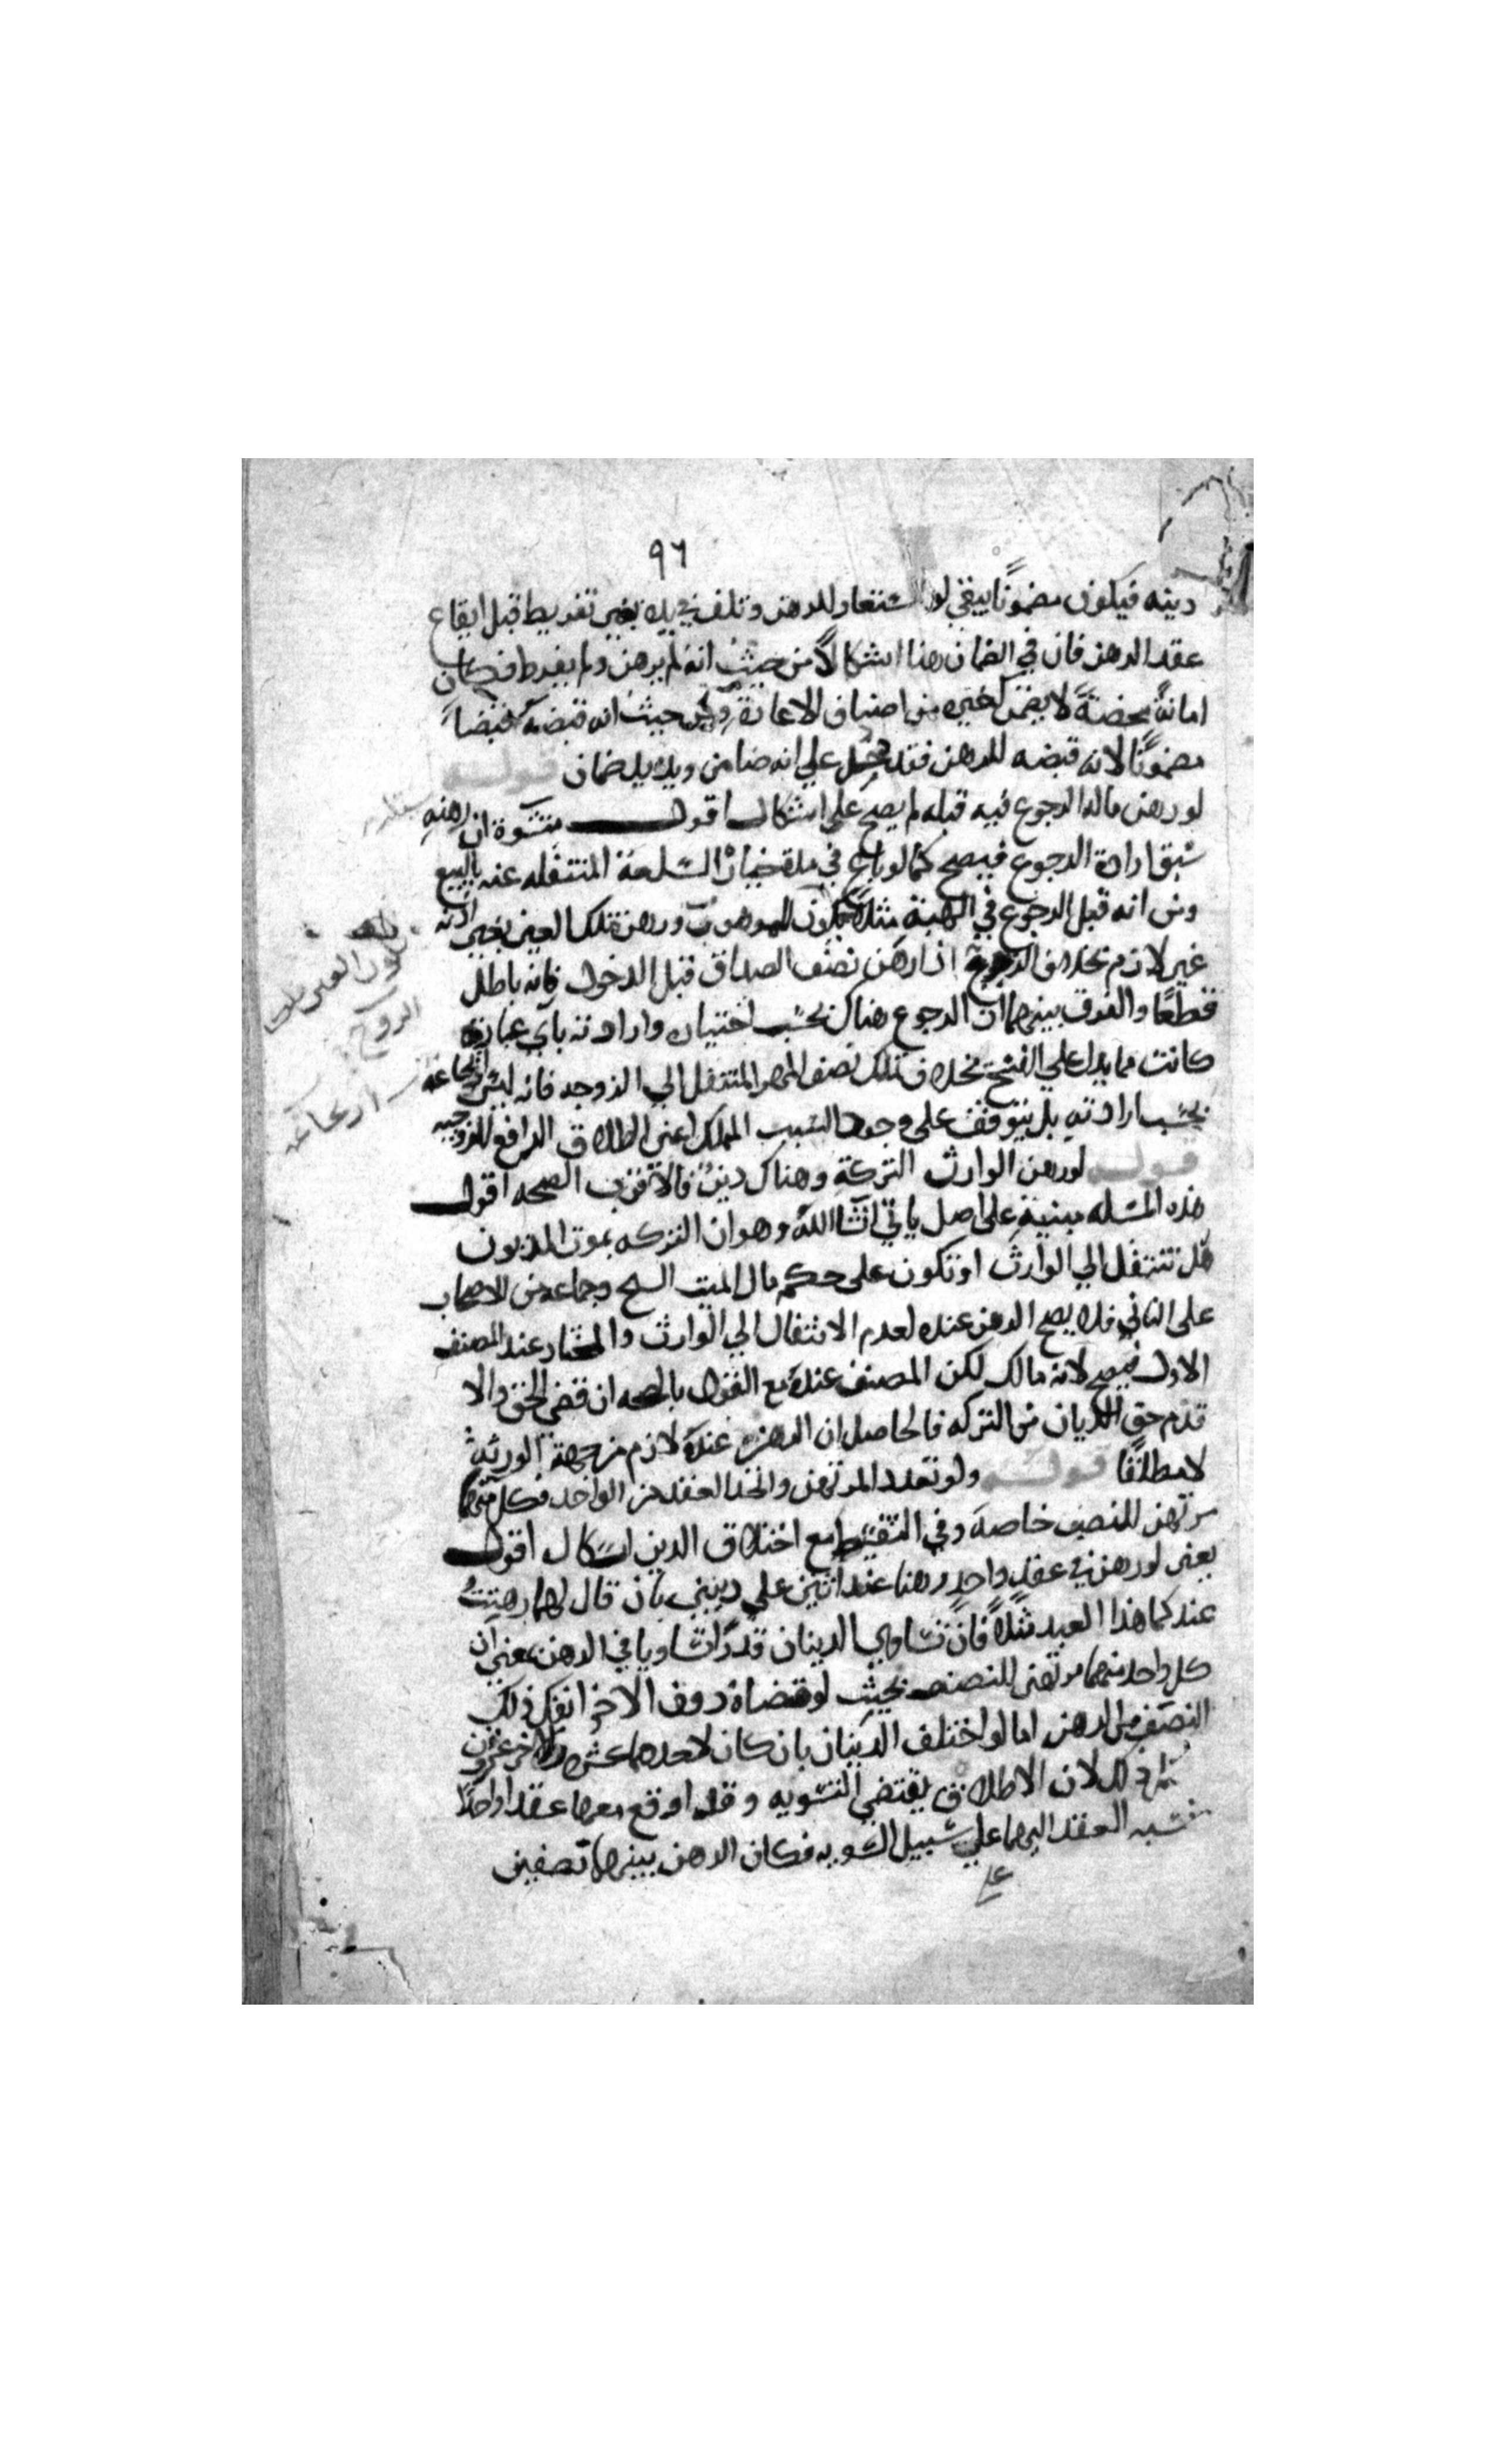 ٩٦
دينه فيكون مضمونا يبقي لو استعار للرهن وتلف في يده بغير تفريط قبل ايقاع
عقد الرهن فان في الضمان هنا اشكالا من حيث انه لم يرهن ولم يفرط فكان
امانة محضة لا يضمن كغيره من اصناف الاعارة ومن حيث انه قبضه قبضا
مضمونا لانه قبضه للرهن فقد دخل علي انه ضامن ويده يد ضمان قوله
لو رهن ماله الرجوع فيه قبله لم يصح علي اشكال اقول منشؤه ان رهنه
سبق ارادة الرجوع فيصح كما لو باع في مدة خيار السلعة المنتقله عنه بالبيع
ومن انه قبل الرجوع في الهبة مثلا يكون للموهوب ورهن تلك العين بغير اذنه
غير لازم بخلاف الزوج اذا رهن نصف الصداق قبل الدخول فانه باطل
قطعا والفرق بينهما ان الرجوع هناك بحسب اختياره وارادته باي عبارة
كانت مما يدل علي الفسخ بخلاف تملك نصف المهر المنتقل الي الزوجه فانه ليس
بحسب ارادته بل يتوقف على وجود السبب المملك اعني الطلاق الرافع للزوجيه
قوله لو رهن الوارث التركة وهناك دين فالاقرب الصحه اقول
هذه المسله مبنية على اصل ياتي انشا الله وهو ان التركه بموت المديون
هل تنتقل الي الوارث او تكون على حكم مال الميت الشيخ وجماعه من الاصحاب
على الثاني فلا يصح الرهن عنده لعدم الانتقال الي الوارث والمختار عند المصنف
الاول فيصح لانه مالك لكن المصنف عنده مع القول بالصحه ان قضي الحق والا
قدم حق الديان من التركه فالحاصل ان الرهن عنده لازم من جهة الورثة
لا مطلقا قوله ولو تعدد المرتهن واتحد العقد من الواحد فكل منهما
مرتهن للنصف خاصة وفي التقسيط مع اختلاف الدين اشكال اقول
يعني لو رهن في عقد واحد رهنا عند اثنين علي دينين بان قال لهما رهنت
عندكما هذا العبد مثلا فان تساوي الدينان قدرا تساويا في الرهن يعني ان
كل واحد منهما مرتهن للنصف بحيث لو قضاه دون الاخر انفك ذلك
النصف من الرهن اما لو اختلف الدينان بان كان لاحدهما عشره وللاخر عشرون
ذلك لان الاطلاق يقتضي التسويه وقد اوقع معهما عقدا واحدا
نسبه العقد اليهما علي سبيل السويه فكان الرهن بينهما نصفين